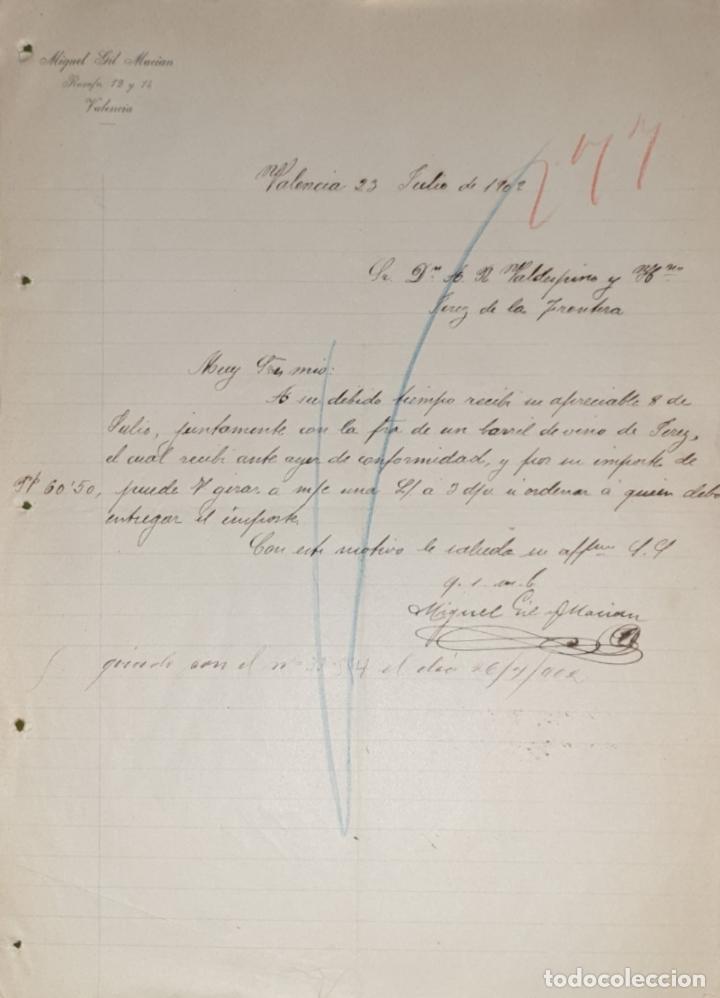 Miguel Gil Macian
Ruzafa 12 y 14
Valencia
Valencia 23 Julio de 1902
277
Sr. Dn A. R Valdespino y Hno
Jerez de la Frontera
Muy Sres mio:
A su debido tiempo recibi su apreciable 8 de
Julio, juntamente con la fra de un barril de vino de Jerez,
el cual recibi ante ayer de conformidad, y por su importe de
Pts 60'50, puede V girar a m/c una L/ á 3 d/v ú ordenar á quien debo
entregar el importe.
Con este motivo le saluda su affmo S.S
q. s. m. b
Miguel Gil Macian
girado con el nº el dia 26/7/902
todocoleccion